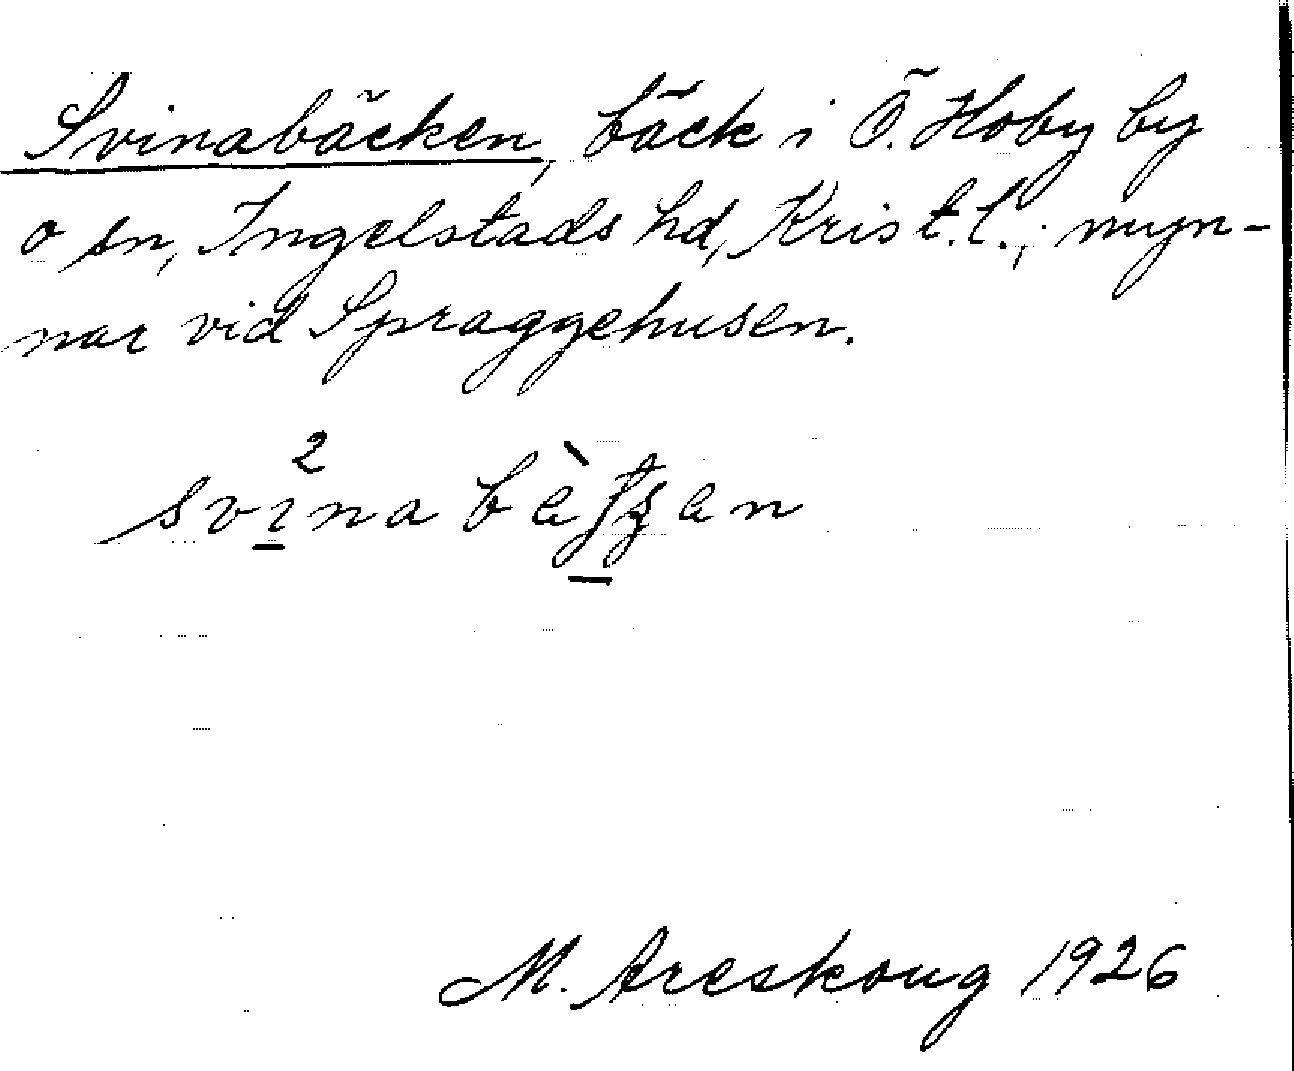 Svinabäcken, bäck i Ö. Hoby by
o sn, Ingelstads hd, Krist. l.; myn-
nar vid Spraggehusen.
M. Areskoug 1926